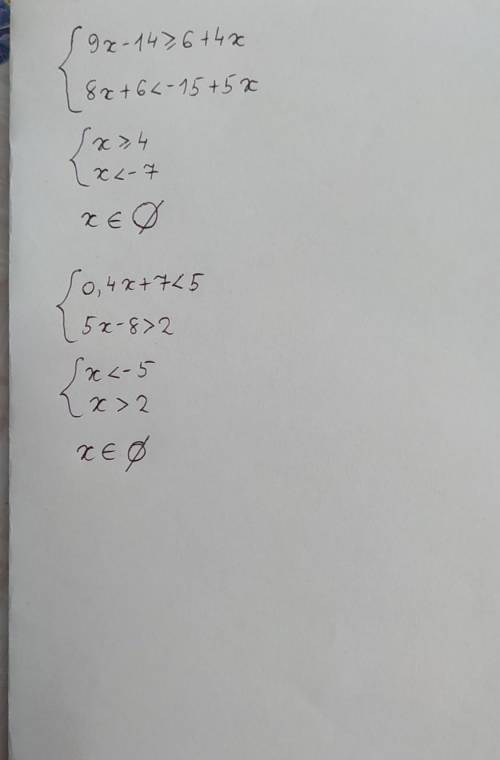 9x-14≥6+4x
8x+6<-15+5x
x≥4
x<-7
x∈∅
0,4x+7<5
5x-8>2
x<-5
x>2
x∈∅